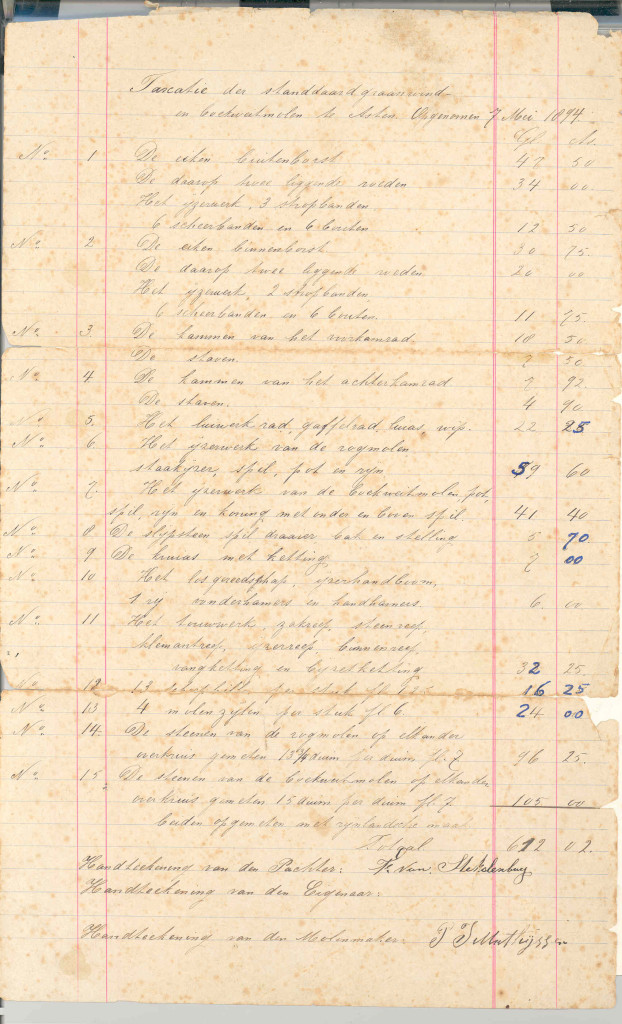 Taxcatie der standdaardgraanwind
en boekweitmolen te Asten Opgenomen 7 Mei 1894
Gl Cts.
No. 1 De eiken buitenborst 47 50
De daarop twee liggende roeden 34 00.
Het yzerwerk, 3 stropbanden
6 scheerbanden en 6 bouten 12 50
No. 2 De eiken binnenborst 30 75.
De daarop twee liggende roeden 20 00
Het yzerwerk, 2 stropbanden
6 scheerbanden en 6 bouten. 11 75.
No. 3. De kammen van het voorkamrad. 18 50
De staven. 7 50
No. 4. De kammen van het achterkamrad 7 92
De staven. 4 90
No. 5. Het luiwerk rad, gaffelrad, luias, wip. 22 25
No. 6. Het yzerwerk van de rogmolen
staakyzer, spil, pot en ryn 59 60
No. 7. Het yzerwerk van de boekweitmolen, pot,
spil, ryn en koning met onder en boven spil. 41 40
No. 8 De slypsteen spil draaier bak en stelling 5 70
No. 9 De kruias met ketting 7 00
No. 10 Het los gereedschap, yzerhandboom,
1 ry vonderhamers en handhamers. 6 00
No. 11 Het touwwerk, zakreep, steenreep,
klemantreep, yzerreep binnenreep,
vangketting en 32 25
No. 12 13 per stuk fl 1.25 16 25
No. 13 4 molenzeylen per stuk fl 6 24 00
No. 14. De steenen van de rogmolen op elkander
overkruis gemeten 13 3/4 duim per duim fl. 7 96 25.
No. 15 De steenen van de boekweitmolen op elkander
overkruis gemeten 15 duim per duim fl. 7 105 00
beiden opgemeten met rynlandsche maat
Totaal 612 02.
Handteekening van den Pachter: van Stekelenburg
Handteekening van den Eigenaar:
Handteekening van den Molenmaker: